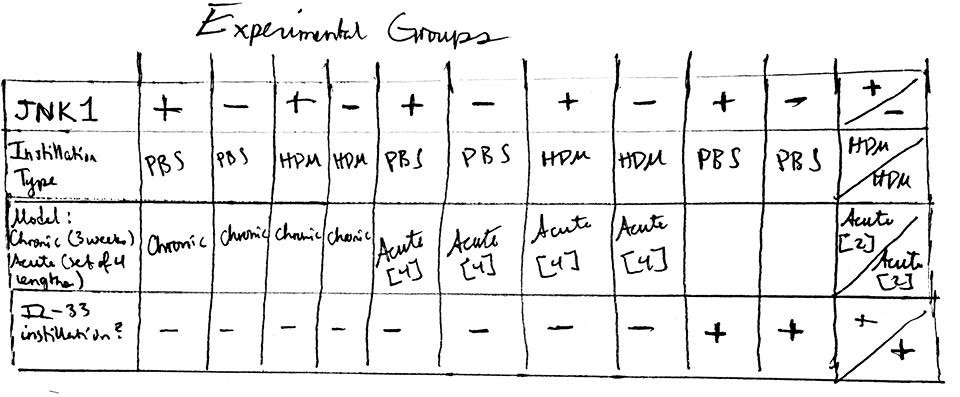 Experimental Groups
JNK1 + − + − + − + − + − + −
Instillation Type PBS PBS HDM HDM PBS PBS HDM HDM PBS PBS HDM HDM
Model: Chronic (3 weeks) Acute (set of 4 lengths) Chronic Chronic Chronic Chronic Acute [4] Acute [4] Acute [4] Acute [4] Acute [2] Acute [2]
IL-33 instillation? − − − − − − − − + + + +